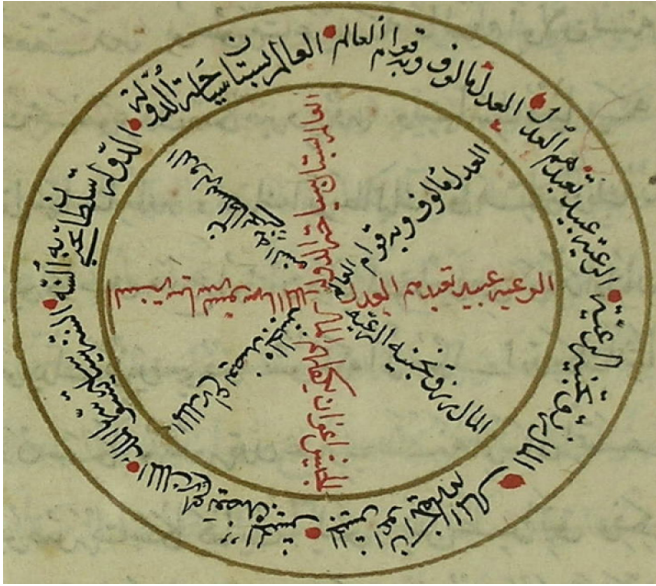 العالم بستان سياجه الدولة
الدولة سلطان تحيى به السنة
السنة سياسة يسوسها الملك
الملك راع يعضده الجيش
الجيش اعوان يكفلهم المال
المال رزق تجنيه الرعيّة
الرعية عبيد تعبدهم العدل
العدل مالوف وبه قوام العالم
العالم بستان سياجه الدولة
الدولة سلطان تحيى به السنة
السنة سياسة يسوسها الملك
الملك راع يعضده الجيش
الجيش اعوان يكفلهم المال
المال رزق تجنيه الرعيّة
الرعية عبيد تعبدهم العدل
العدل مالوف وبه قوام العالم